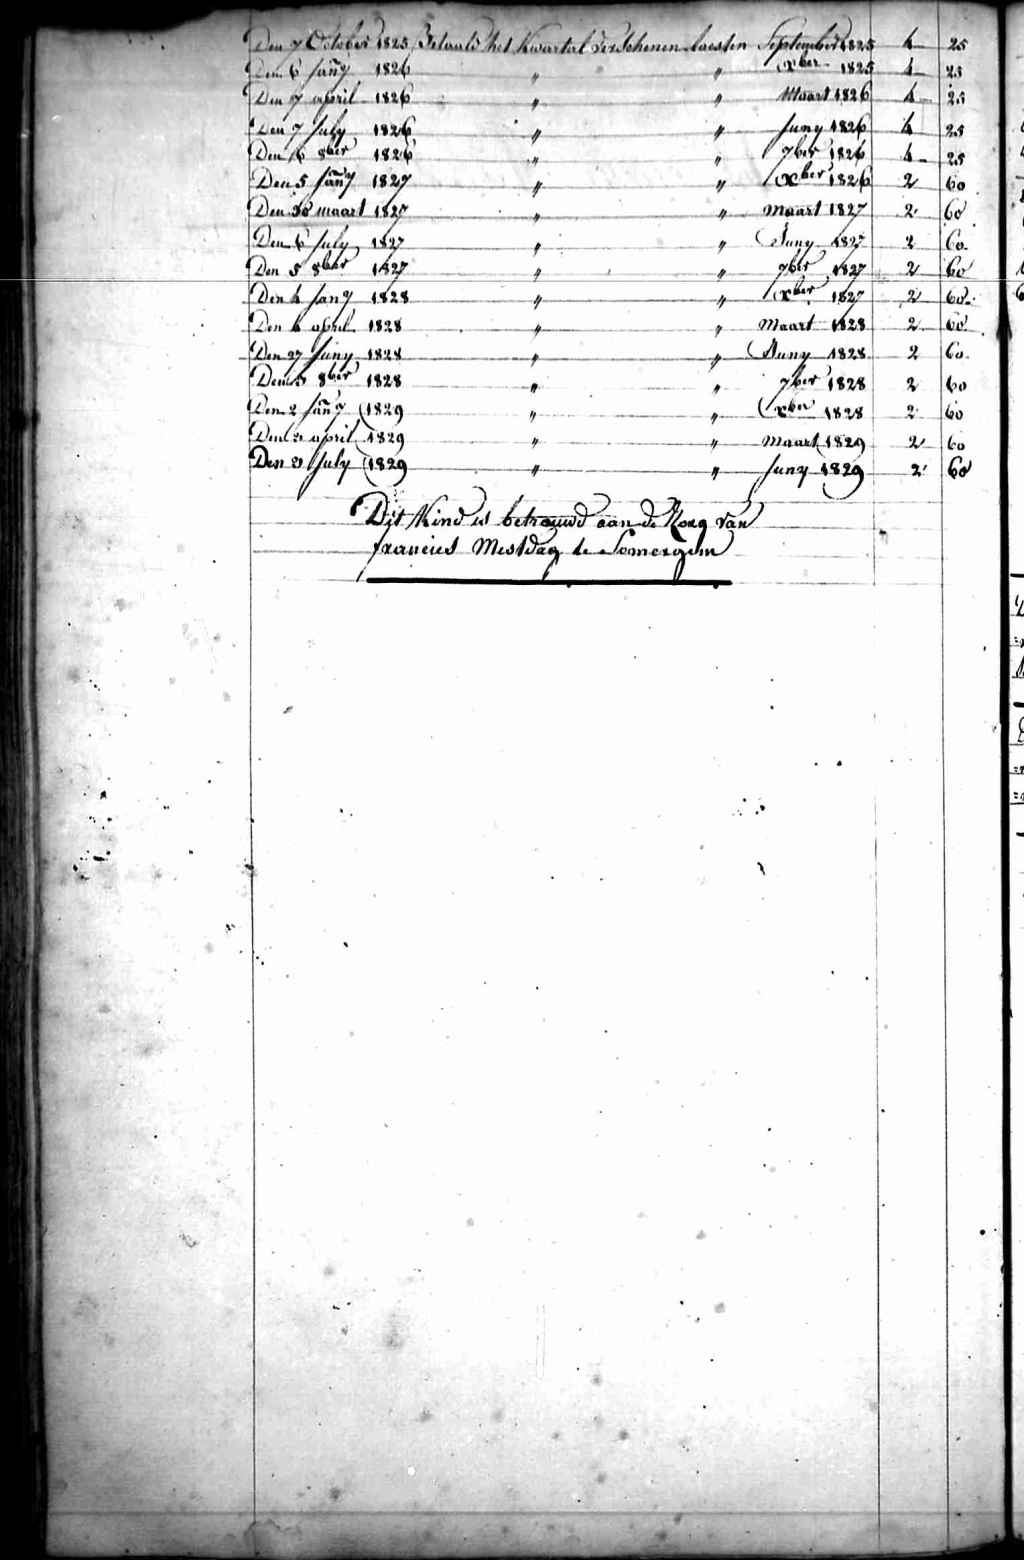 Den 7 October 1825 Betaald het Kwartal verschenen laesten September 1825 4 25
Den 6 Jany 1826 " " xber 1825 4 25
Den 7 april 1826 " " Maart 1826 4 25
Den 7 July 1826 " " Juny 1826 4 25
Den 6 8ber 1826 " " 7ber 1826 4 25
Den 5 Jany 1827 " " xber 1826 2 60
Den 30 maart 1827 " " maart 1827 2 60
Den 6 July 1827 " " Juny 1827 2 60
Den 5 8ber 1827 " " 7ber 1827 2 60
Den 4 Jany 1828 " " xber 1827 2 60
Den april 1828 " " Maart 1828 2 60
Den 27 Juny 1828 " " Juny 1828 2 60
Den 8ber 1828 " " 7ber 1828 2 60
Den 2 Jany 1829 " " xber 1828 2 60
Den april 1829 " " Maart 1829 2 60
Den July 1829 " " Juny 1829 2 60
Dit Kind is betrouwd aan de Zorg van
francies Mestdag te Somergem